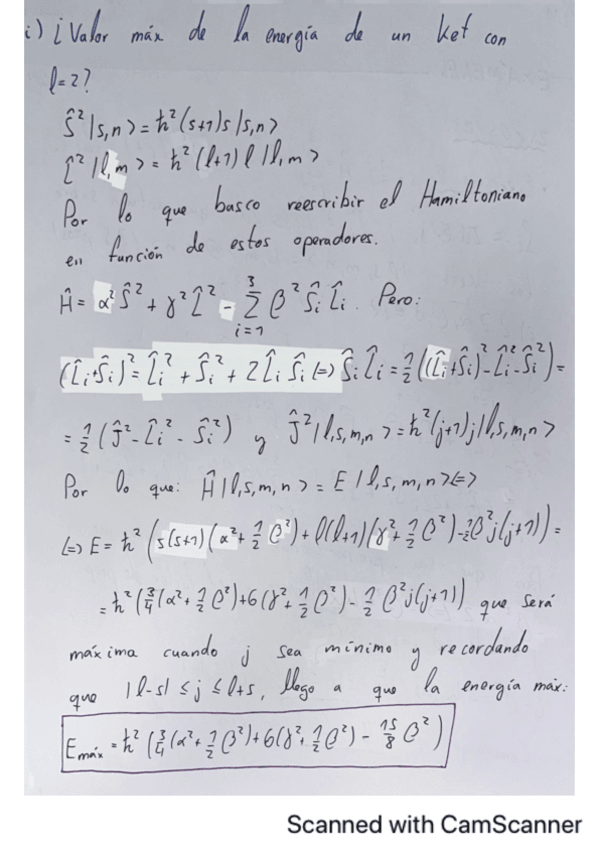 i) ¿Valor máx de la energía de un ket con
l=2?
Ŝ²|s,n>=ħ²(s+1)s|s,n>
L̂²|l,m>=ħ²(l+1)l|l,m>
Por lo que busco reescribir el Hamiltoniano
en función de estos operadores.
Ĥ=α²Ŝ²+γ²L̂²-∑_{i=1}^{3}β²Ŝ_iL̂_i. Pero:
(L̂_i+Ŝ_i)²=L̂_i²+Ŝ_i²+2L̂_iŜ_i(=)Ŝ_iL̂_i=½((L̂_i+Ŝ_i)²-L̂_i²-Ŝ_i²)=
=½(Ĵ²-L̂_i²-Ŝ_i²) y Ĵ²|l,s,m,n>=ħ²(j+1)j|l,s,m,n>
Por lo que: Ĥ|l,s,m,n>=E|l,s,m,n>(=)
(=)E=ħ²(s(s+1)(α²+½β²)+l(l+1)(γ²+½β²)-½β²j(j+1))=
=ħ²(¾(α²+½β²)+6(γ²+½β²)-½β²j(j+1)) que será
máxima cuando j sea mínimo y recordando
que |l-s|≤j≤l+s, llego a que la energía máx:
E_máx=ħ²(¾(α²+½β²)+6(γ²+½β²)-15/8β²)
Scanned with CamScanner